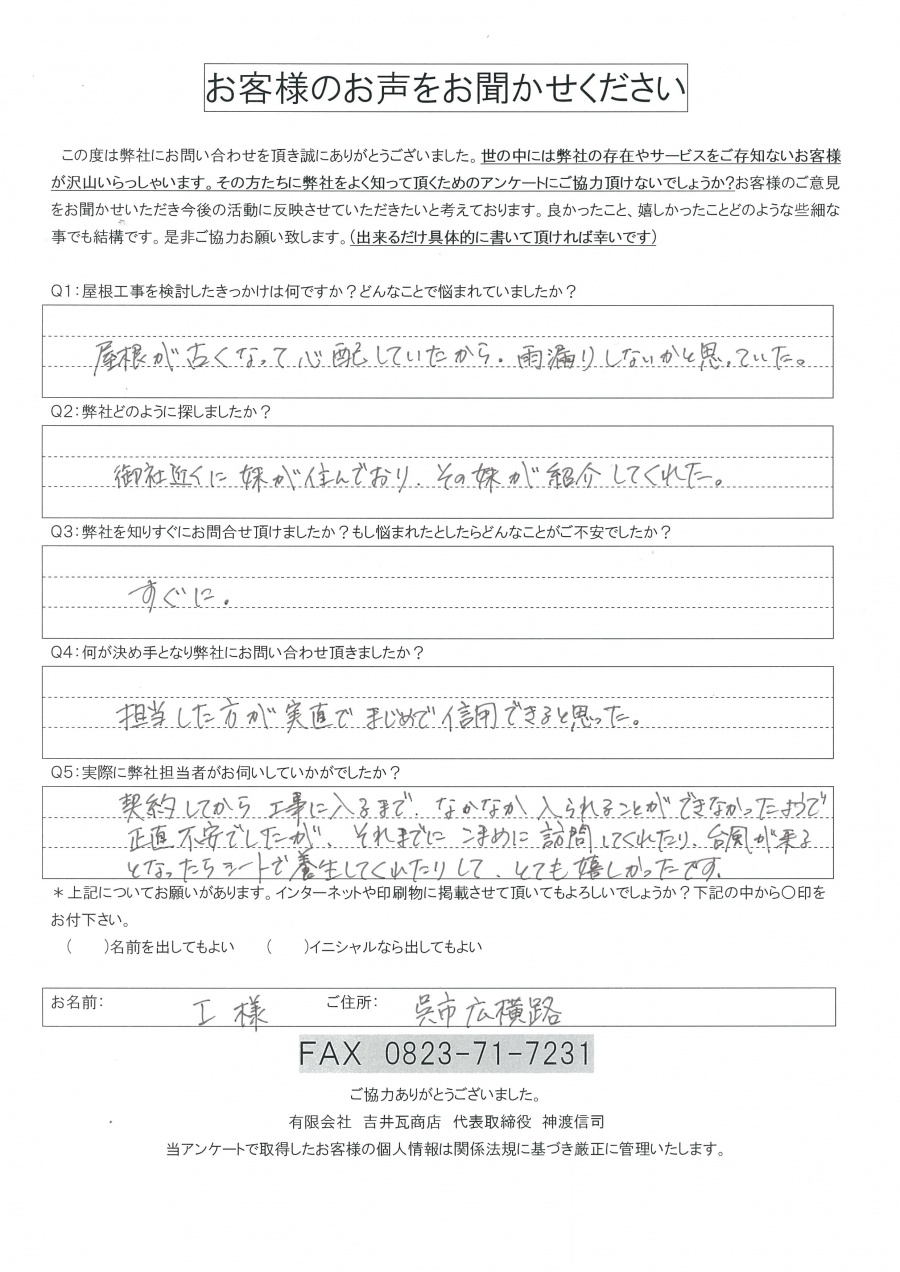 お客様のお声をお聞かせください
この度は弊社にお問い合わせを頂き誠にありがとうございました。世の中には弊社の存在やサービスをご存知ないお客様
が沢山いらっしゃいます。その方たちに弊社をよく知って頂くためのアンケートにご協力頂けないでしょうか?お客様のご意見
をお聞かせいただき今後の活動に反映させていただきたいと考えております。良かったこと、嬉しかったことどのような些細な
事でも結構です。是非ご協力お願い致します。(出来るだけ具体的に書いて頂ければ幸いです)
Q1:屋根工事を検討したきっかけは何ですか?どんなことで悩まれていましたか?
屋根が古くなって心配していたから。雨漏りしないかと思っていた。
Q2:弊社どのように探しましたか?
御社近くに妹が住んでおり、その妹が紹介してくれた。
Q3:弊社を知りすぐにお問合せ頂けましたか?もし悩まれたとしたらどんなことがご不安でしたか?
すぐに。
Q4:何が決め手となり弊社にお問い合わせ頂きましたか?
担当した方が実直でまじめで信用できると思った。
Q5:実際に弊社担当者がお伺いしていかがでしたか?
契約してから工事に入るまで、なかなか入られることができなかったようで
正直不安でしたが、それまでにこまめに訪問してくれたり、台風が来る
となったらシートで養生してくれたりして、とても嬉しかったです。
＊上記についてお願いがあります。インターネットや印刷物に掲載させて頂いてもよろしいでしょうか?下記の中から○印を
お付下さい。
(　　)名前を出してもよい　　(　　)イニシャルなら出してもよい
お名前:　I 様　ご住所:　呉市広横路
FAX 0823-71-7231
ご協力ありがとうございました。
有限会社　吉井瓦商店　代表取締役　神渡信司
当アンケートで取得したお客様の個人情報は関係法規に基づき厳正に管理いたします。